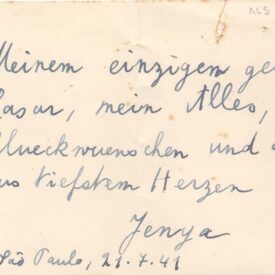 ALS
Meinem einzigen ge
Lasar, mein Alles,
Glueckwuenschen und
aus tiefstem Herzen
Jenya
São Paulo, 21.7.41